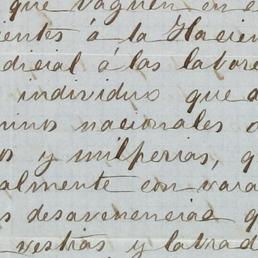 que vaguen en e
entes á la Hacien
dicial á las labore
individuos que a
minos nacionales o
os y milperias, q
almente con vara
s desavenencias q
vestias y labrad